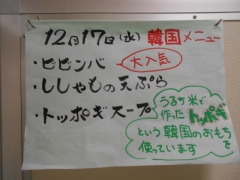 12月17日(水) 韓国メニュー
・ビビンバ 大人気
・ししゃもの天ぷら
・トッポギスープ
うるち米で
作ったトッポギ
という韓国のおもちを
使っています